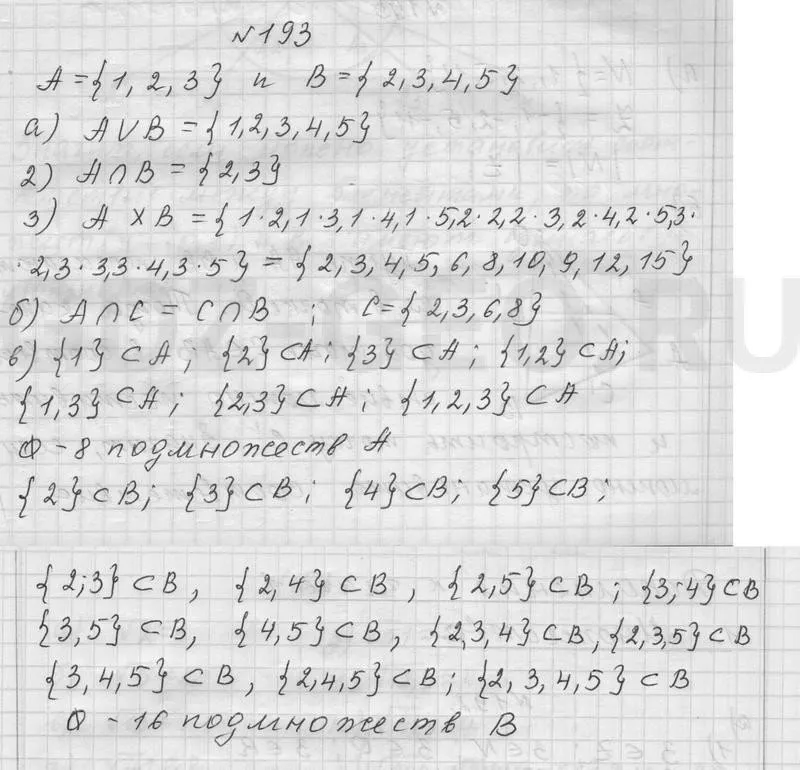 №193
A = {1, 2, 3} и B = {2, 3, 4, 5}
а) A∪B = {1, 2, 3, 4, 5}
2) A∩B = {2, 3}
3) A X B = {1·2, 1·3, 1·4, 1·5, 2·2, 2·3, 2·4, 2·5, 3·
·2, 3·3, 3·4, 3·5} = {2, 3, 4, 5, 6, 8, 10, 9, 12, 15}
б) A∩C = C∩B ; C = {2, 3, 6, 8}
в) {1} ⊂ A ; {2} ⊂ A ; {3} ⊂ A ; {1, 2} ⊂ A;
{1, 3} ⊂ A ; {2, 3} ⊂ A ; {1, 2, 3} ⊂ A
Ф - 8 подмножеств A
{2} ⊂ B; {3} ⊂ B; {4} ⊂ B; {5} ⊂ B;
{2; 3} ⊂ B, {2, 4} ⊂ B, {2, 5} ⊂ B; {3; 4} ⊂ B
{3, 5} ⊂ B, {4, 5} ⊂ B, {2, 3, 4} ⊂ B, {2, 3, 5} ⊂ B
{3, 4, 5} ⊂ B, {2, 4, 5} ⊂ B; {2, 3, 4, 5} ⊂ B
Ф - 16 подмножеств B